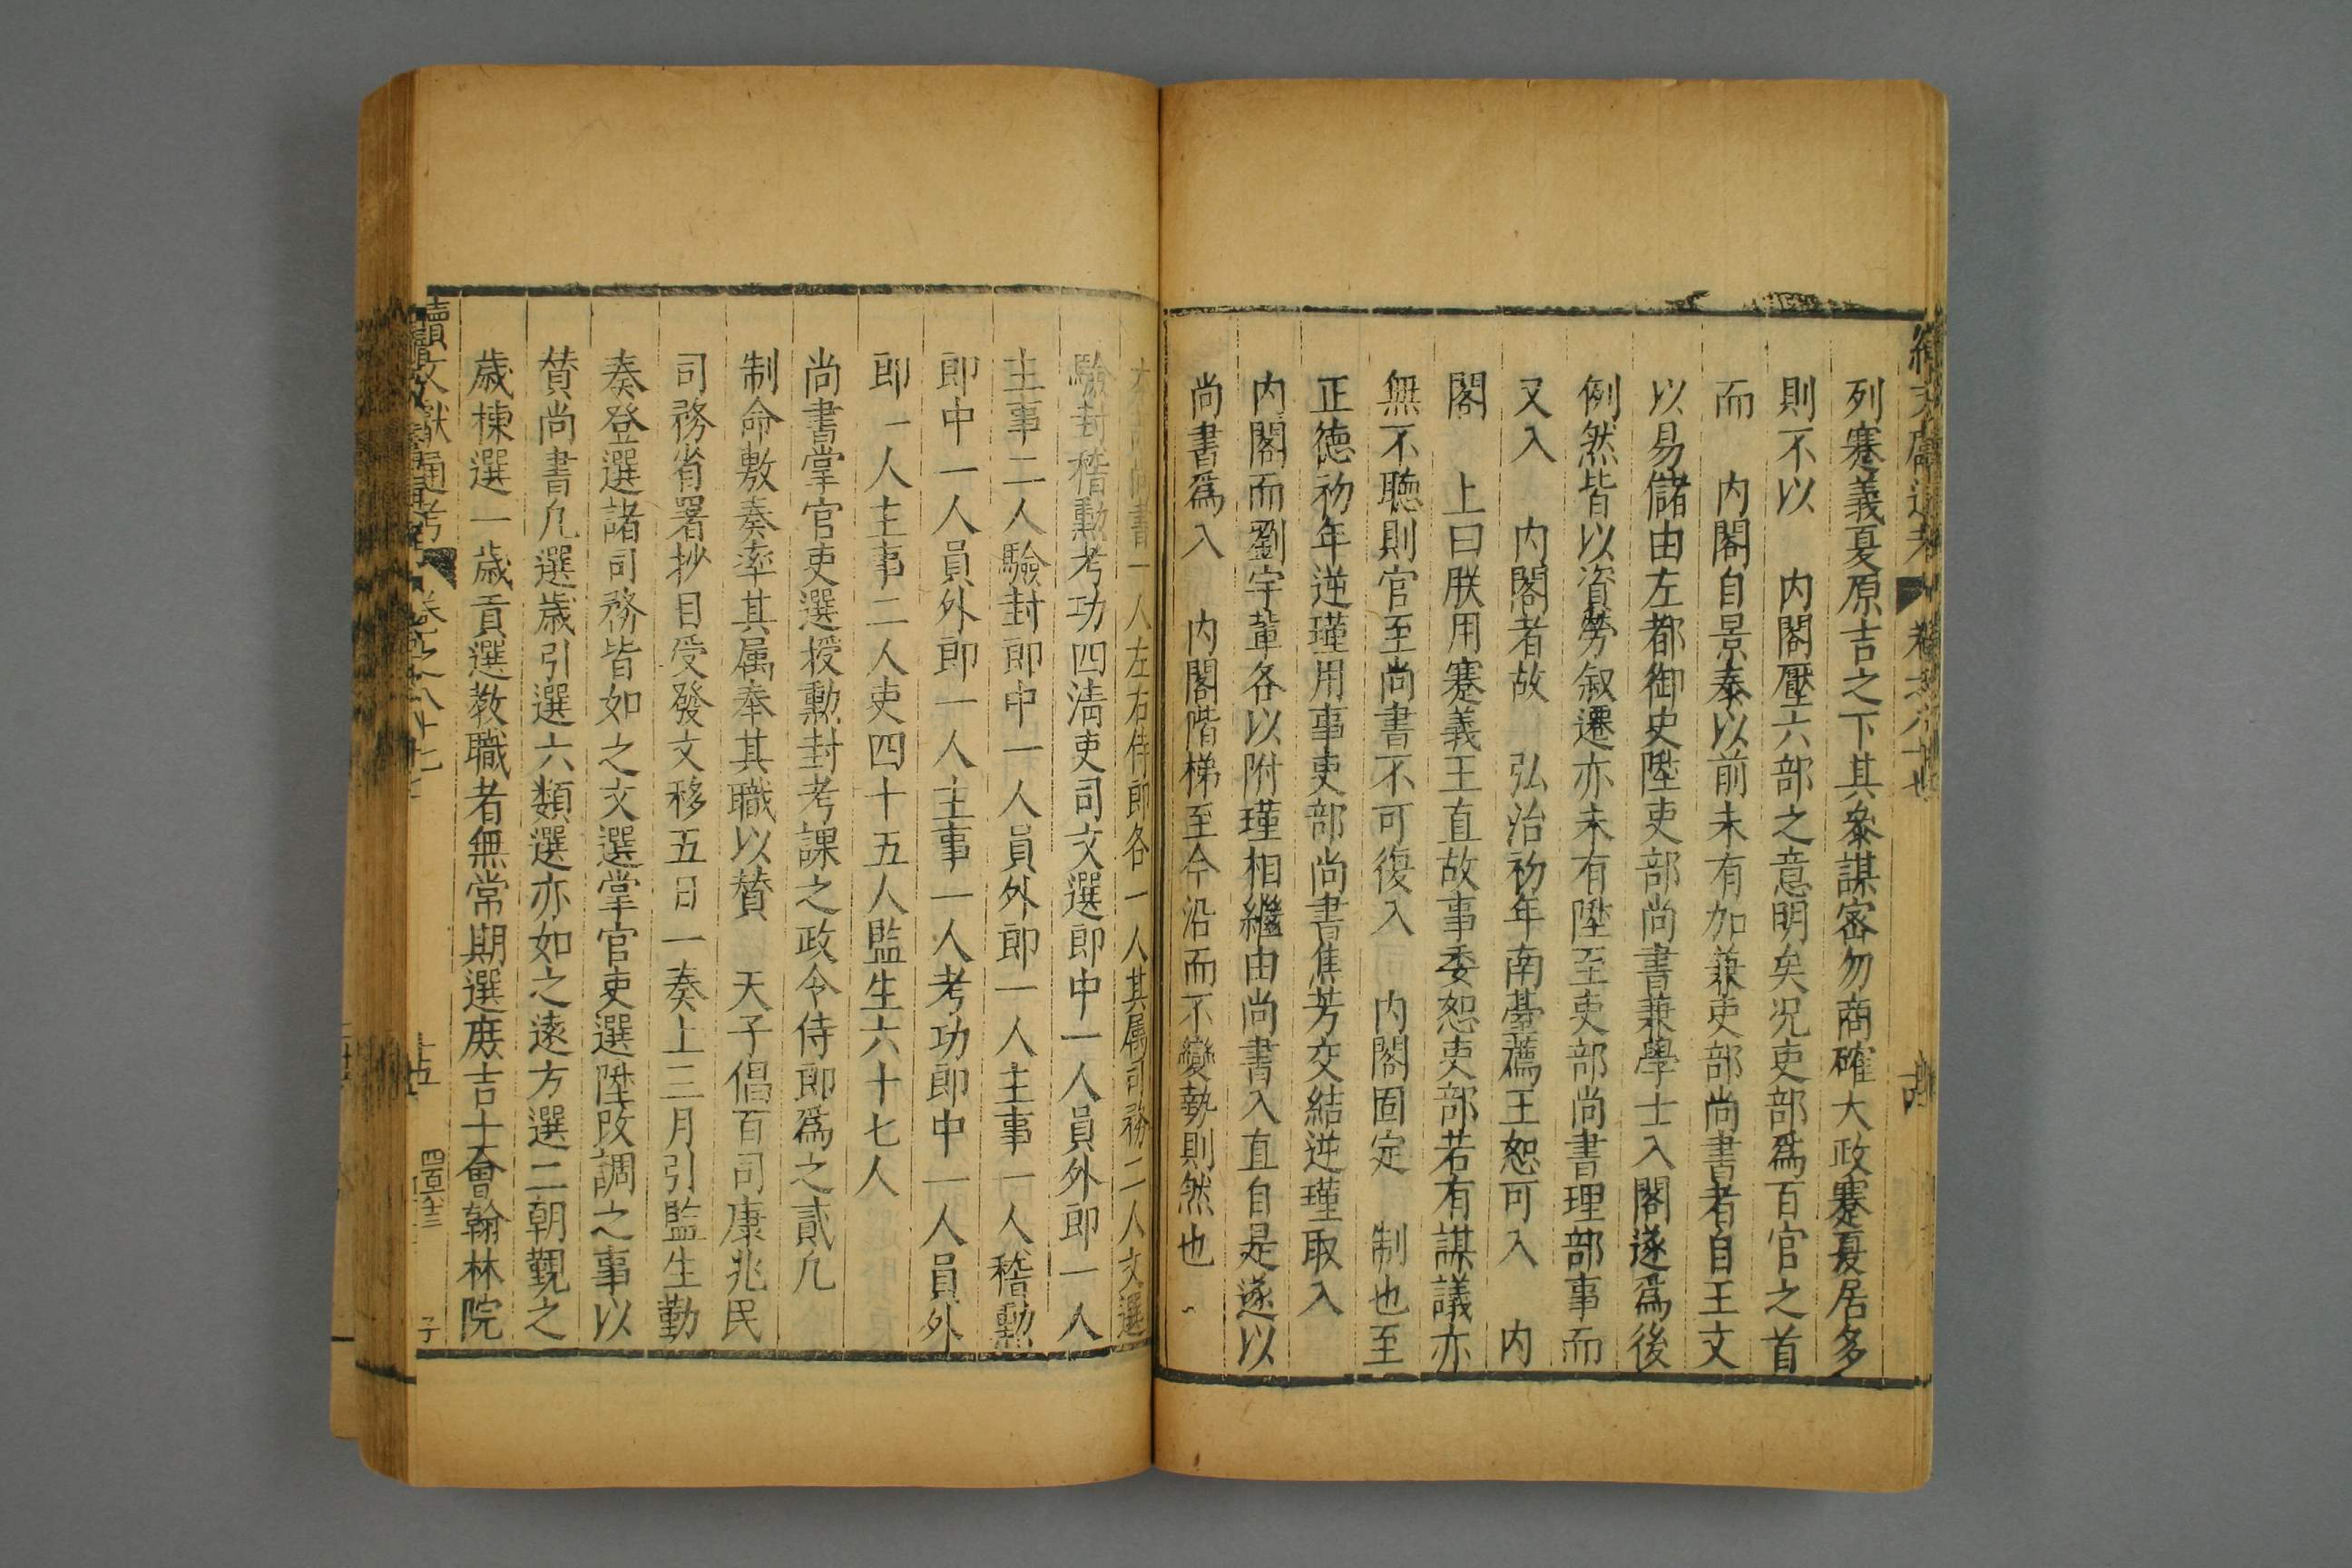 列蹇義夏原吉之下其叅謀密勿商確大政蹇夏居多
則不以　内閣壓六部之意明矣况吏部爲百官之首
而　内閣自景泰以前未有加兼吏部尚書者自王文
以易儲由左都御史陞吏部尚書兼學士入閣遂爲後
例然皆以資勞叙遷亦未有陞至吏部尚書理部事而
又入　内閣者故　弘治初年南臺薦王恕可入　内
閣　上曰朕用蹇義王直故事委恕吏部若有謀議亦
無不聽則官至尚書不可復入　内閣固定　制也至
正德初年逆瑾用事吏部尚書焦芳交結逆瑾取入
内閣而劉宇軰各以附瑾相繼由尚書入直自是遂以
尚書爲入　内閣階梯至今沿而不變勢則然也
書一人左右侍郎各一人其属司務二人文選
驗封稽勳考功四清吏司文選郎中一人員外郎一人
主事二人驗封郎中一人員外郎一人主事一人稽勳
郎中一人員外郎一人主事一人考功郎中一人員外
郎一人主事二人吏四十五人監生六十七人
尚書掌官吏選授勳封考課之政令侍郎爲之貳凡
制命敷奏率其属奉其職以贊　天子倡百司康兆民
司務省署抄目受發文移五日一奏上三月引監生勤
奏登選諸司務皆如之文選掌官吏選陞改調之事以
贊尚書凡選歲引選六類選亦如之遠方選二朝覲之
歲棟選一歲貢選教職者無常期選庻吉士會翰林院
續文獻通考　卷之八十七　十五　四百六十三　子